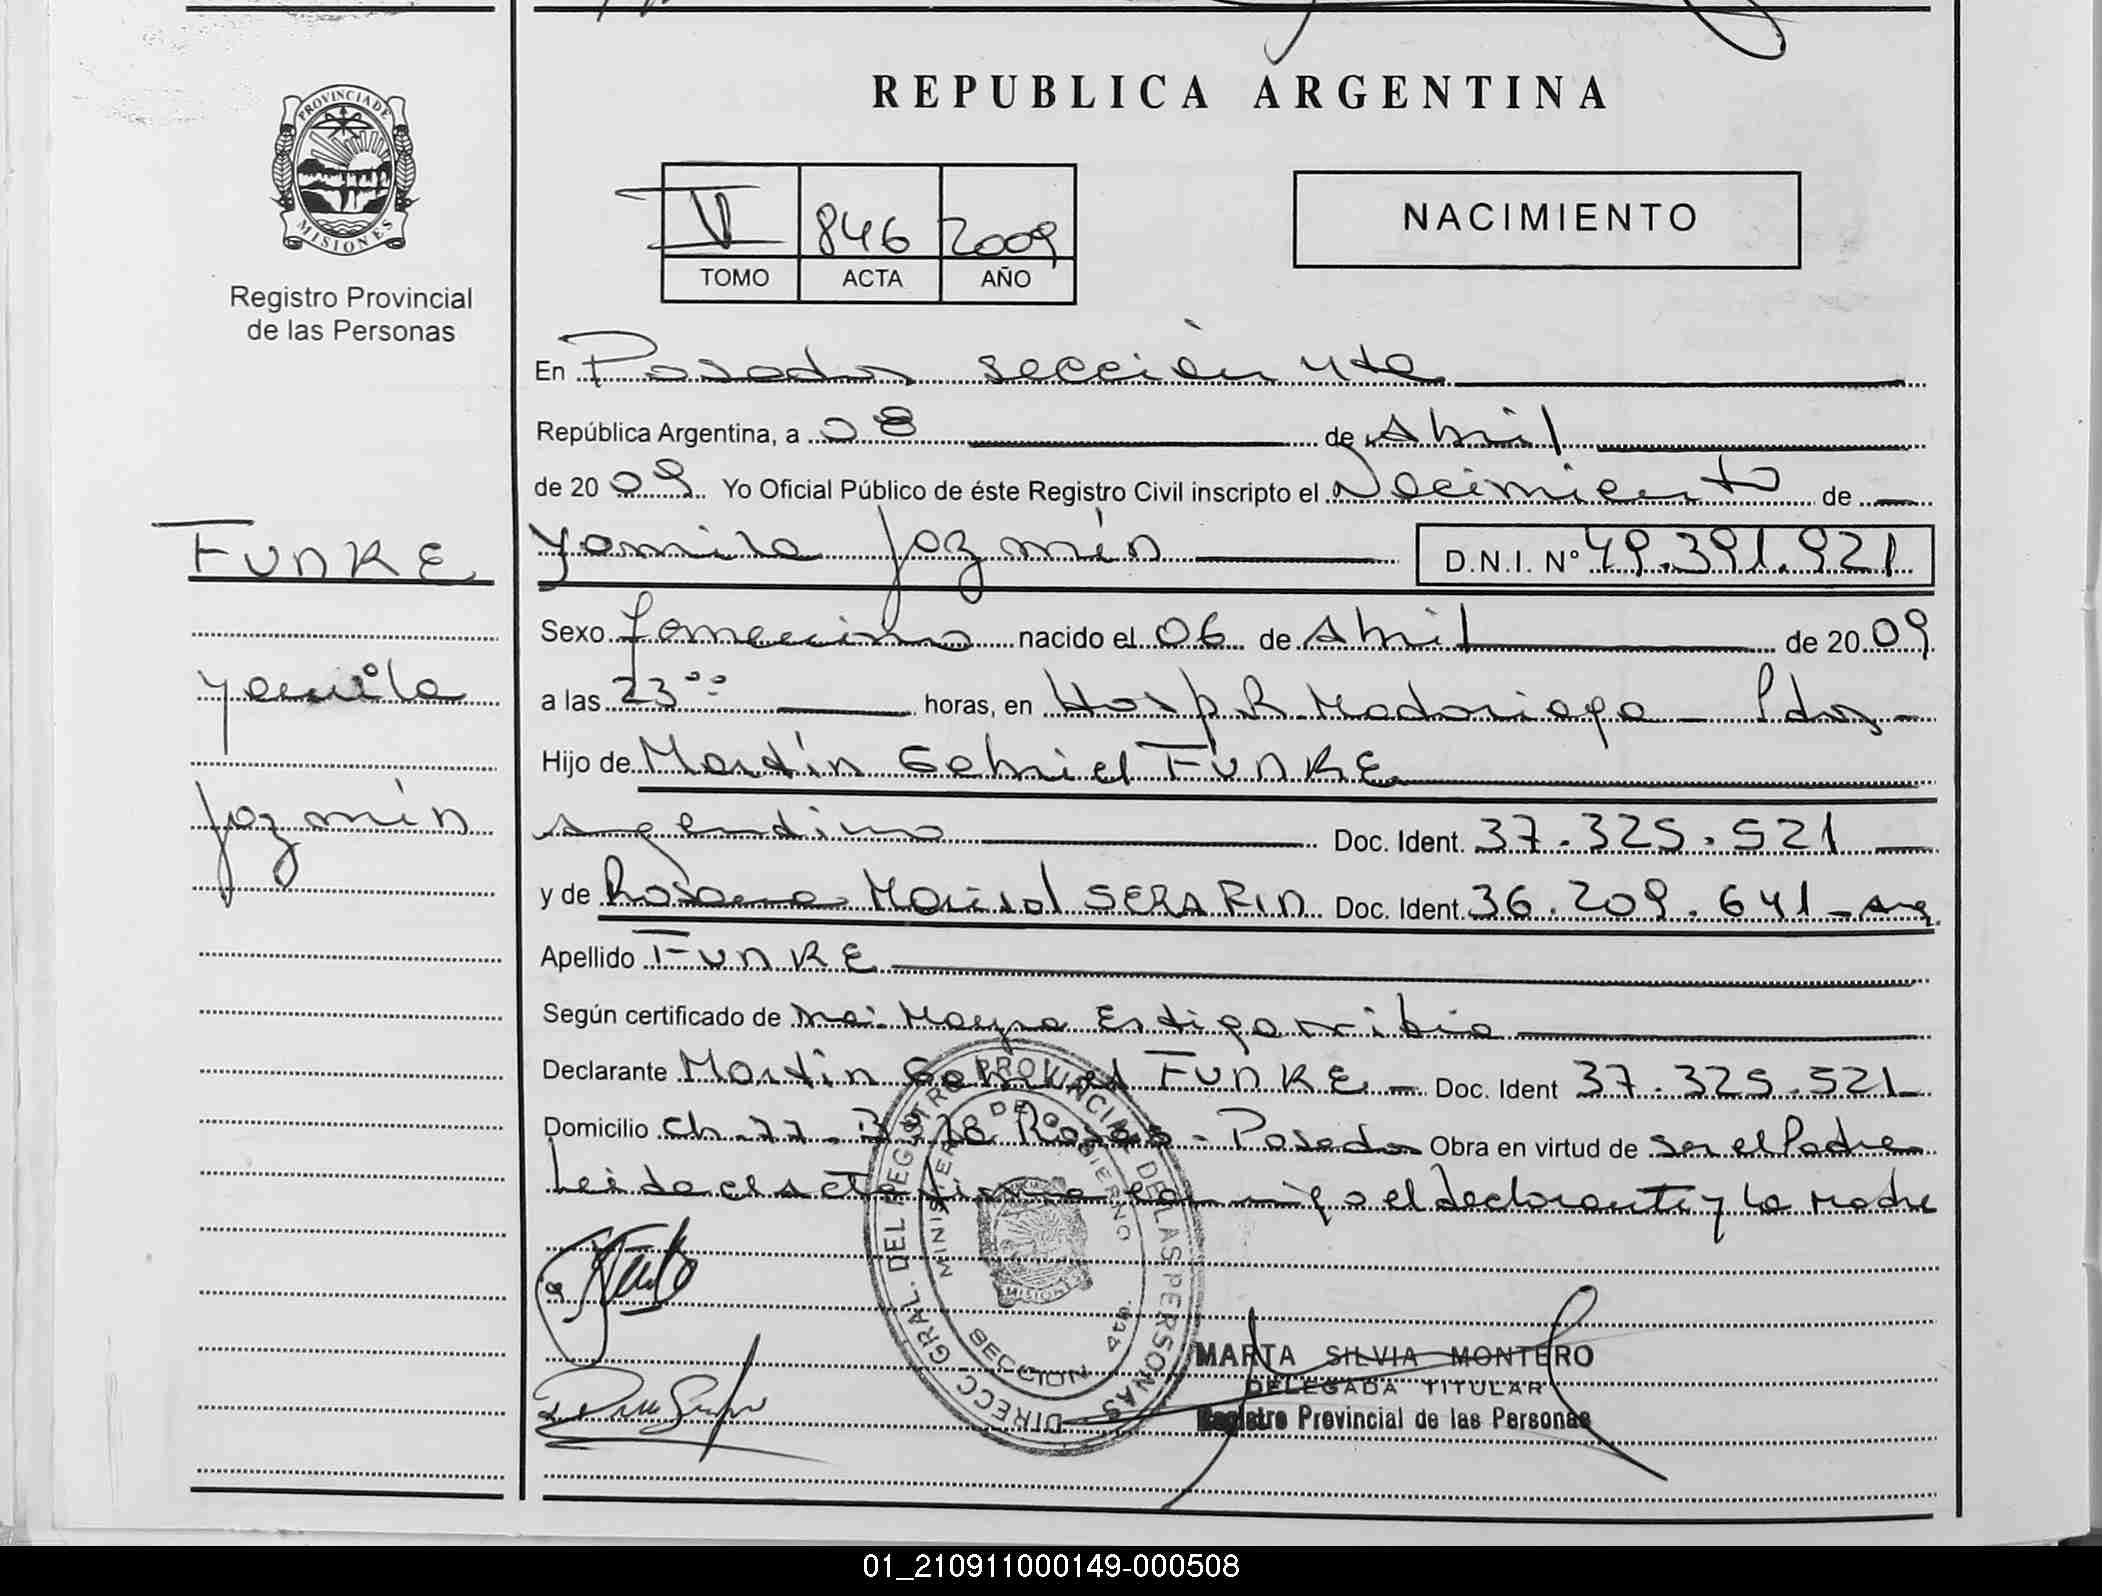 REPUBLICA ARGENTINA
PROVINCIA DE
MISIONES
Registro Provincial
de las Personas
IV 846 2009
TOMO ACTA AÑO
NACIMIENTO
En Posadas sección 4ta
República Argentina, a 08 de Abril
de 2009 Yo Oficial Público de éste Registro Civil inscripto el Nacimiento de
FUNKE
Yamila Jazmín D.N.I. Nº 49.391.921
Sexo femenino nacido el 06 de Abril de 2009
Yamila
a las 23⁰⁰ horas, en Hosp R. Madariaga - Pdas -
Hijo de Martín Gabriel FUNKE
Jazmín
Argentino Doc. Ident. 37.325.521
y de Rosana Marisol SERAFIN Doc. Ident. 36.209.641 - Arg.
Apellido FUNKE
Según certificado de Mayra Estigarribia
Declarante Martín Gabriel FUNKE - Doc. Ident 37.325.521
Domicilio Ch. 77 - Posadas Obra en virtud de ser el Padre
Leida el acta firma conmigo el declarante y la Madre
DIRECC. GRAL. DEL REGISTRO PROVINCIAL DE LAS PERSONAS
MINISTERIO DE GOBIERNO
MISIONES
SECCION 4ta.
MARTA SILVIA MONTERO
DELEGADA TITULAR
Registro Provincial de las Personas
01_210911000149-000508